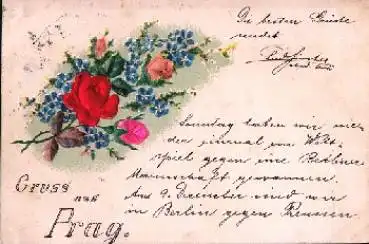 Die besten Grüße
sendet
und
Sonntag haben wir
den einmal
spiel gegen eine Berliner
Mannschaft gewonnen.
Am 9. Dezember sind wir
in Berlin gegen Preussen.
Gruss
aus
Prag.